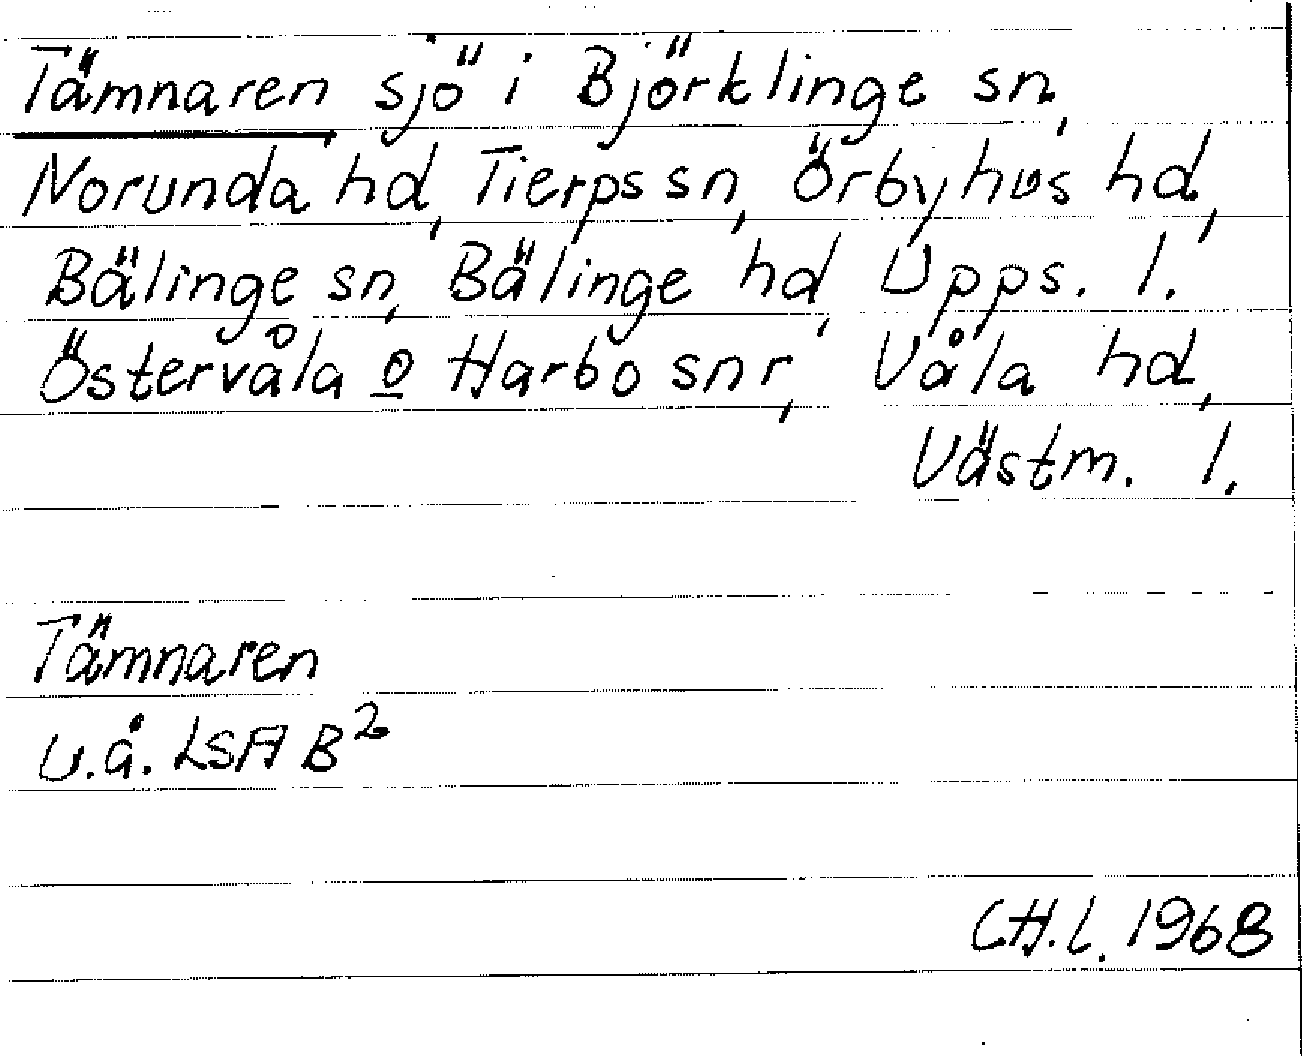 Tämnaren sjö i Björklinge sn,
Norunda hd, Tierps sn, Örbyhus hd,
Bälinge sn, Bälinge hd, Upps. l.
Östervåla o Harbo snr, Våla hd,
Västm. l.
Tämnaren
u.å. LSA B²
CH.L. 1968